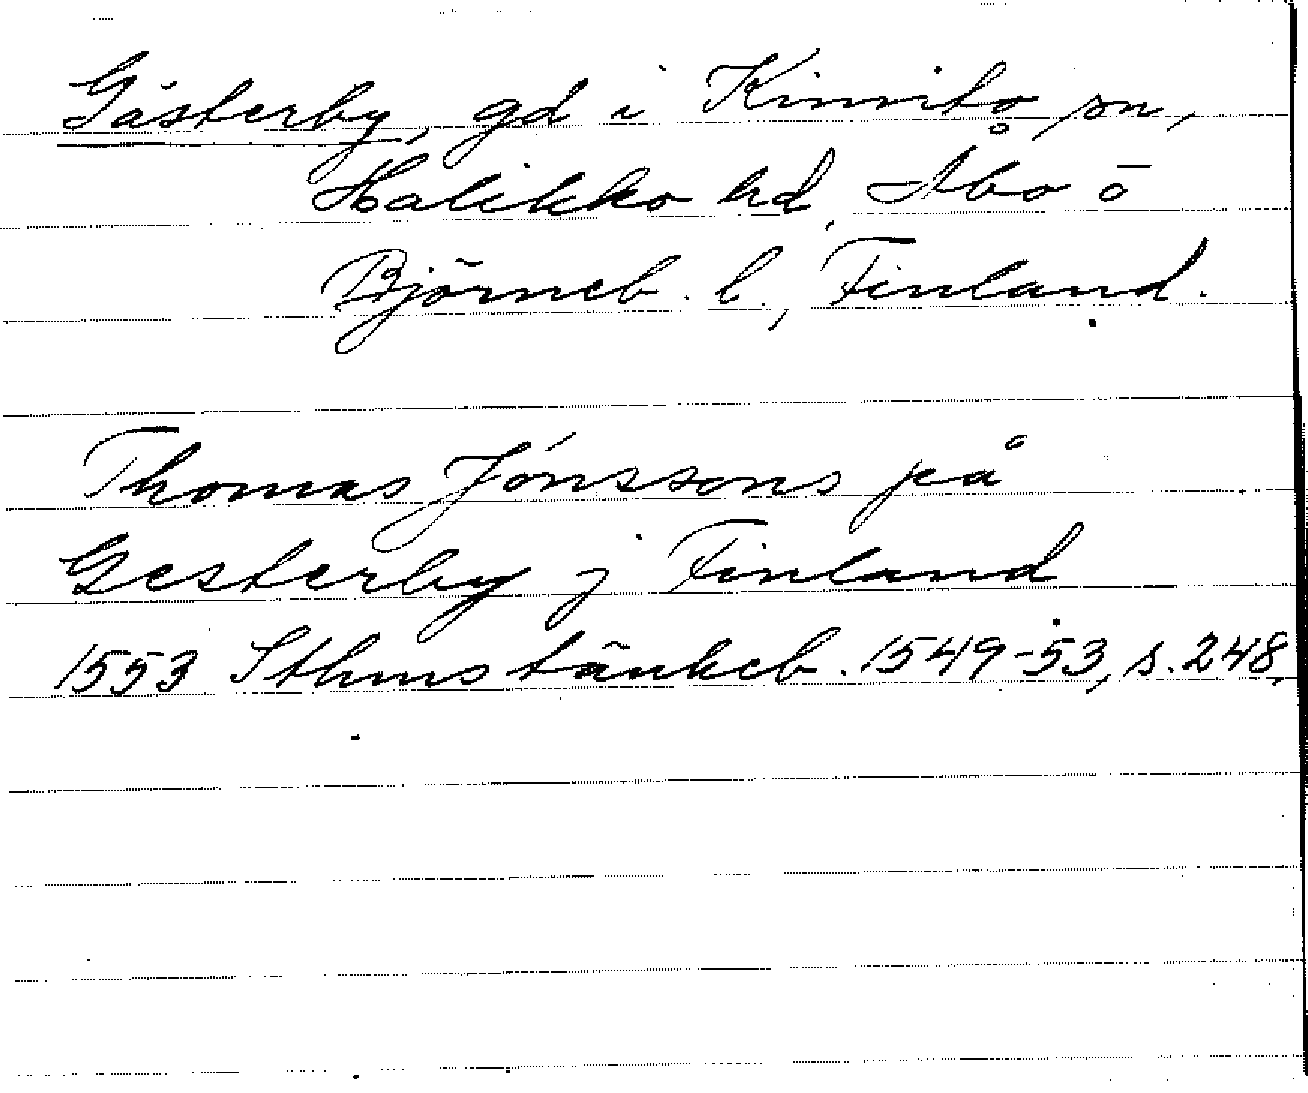 Gästerby, gd i Kimito sn,
Halikko hd, Åbo o
Björneb. l., Finland.
Thomas Jönssons på
Gesterby j Finland
1553 Sthms tänkeb. 1549-53, s. 248.